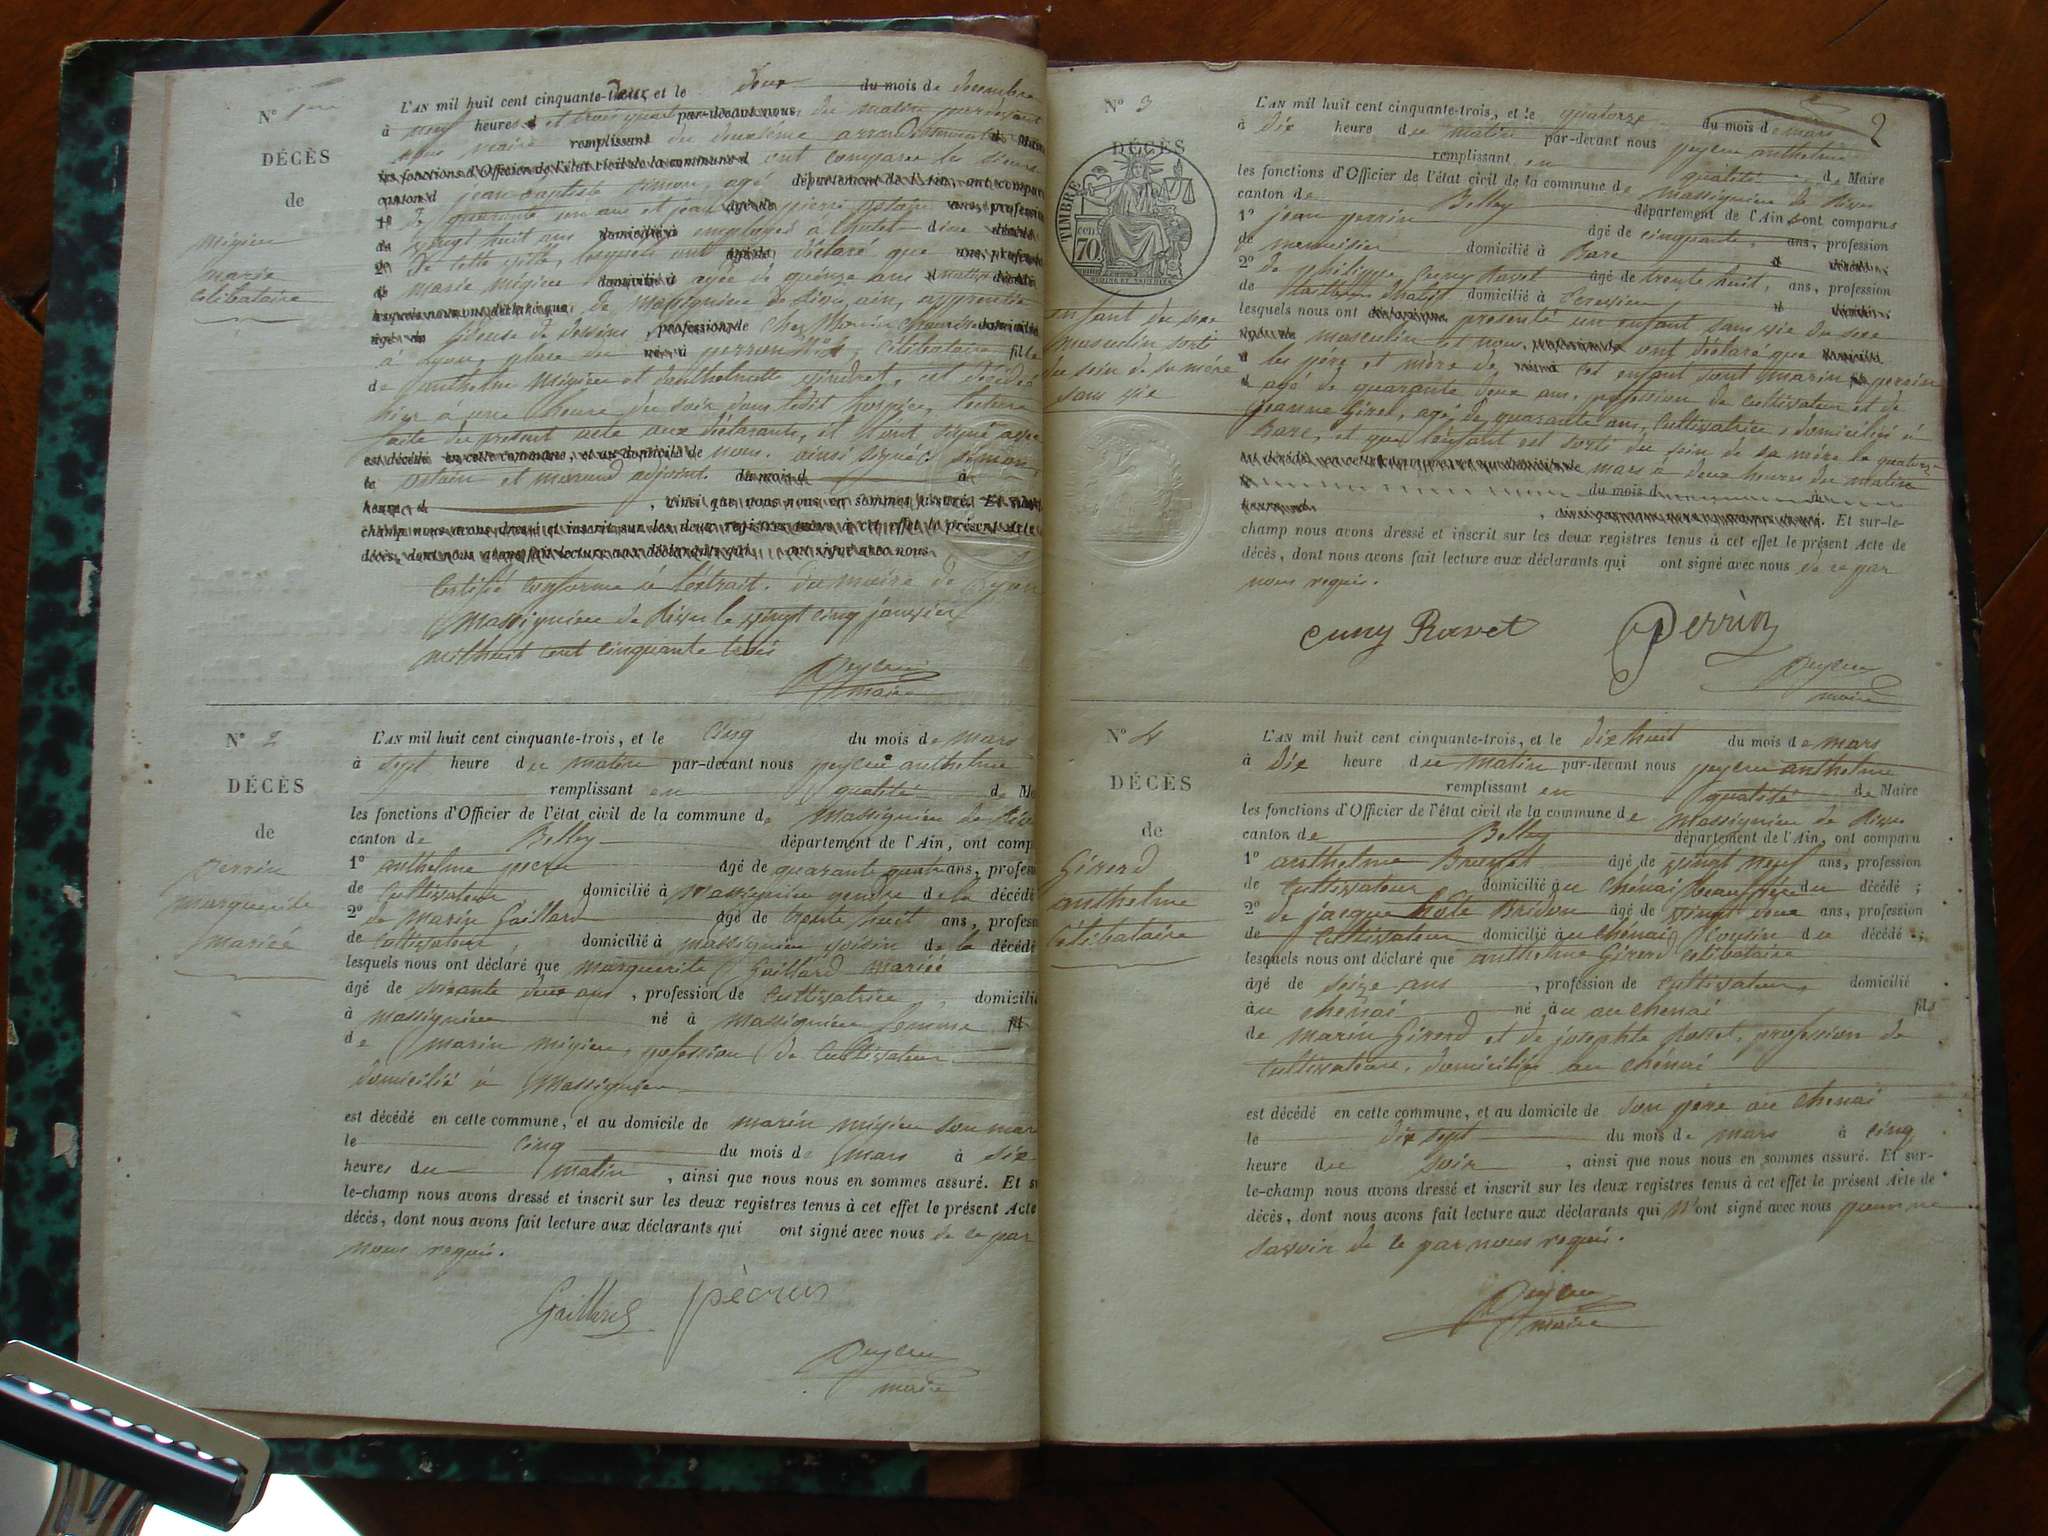 N° 1er
DÉCÈS
de
Mégieu
marie
Célibataire
L'AN mil huit cent cinquante-Deux et le Deux du mois de décembre
à neuf heures et trois quart par-devant nous du matin pardevant
nous maire remplissant du deuxième arrondissement
les fonctions d'Officier de l'état civil de la commune d ont comparu les sieurs
canton d jean-baptiste Simon, agé département de l'Ain, ont compar
1° de quarante un ans et jean pierre ostain
vingt huit ans domicilié à employés à l'hotel-dieu
2° de cette ville, lesquels ont déclaré que
marie Mégieu agée de quinze ans
de Massignieu de Rives, ain, apprentie
liseuse de dessins profession de chez
à Lyon, place du perron N° célibataire fille
de anthelme Mégieu et d'anthelmette est décédée
hier à une heure du soir dans ledit hospice, lecture
faite du présent acte aux déclarants, il ont signé avec
est décédé en cette commune, et au domicile de nous. ainsi signé Simon
le ostain et morand adjoint. du mois d à
heure d , ainsi que nous nous en sommes assuré. Et
champ nous avons dressé et inscrit sur les deux registres tenus à cet effet le présent Acte
décès, dont nous avons fait lecture aux déclarants qui ont signé avec nous
Certifié conforme à l'extrait du maire de Lyon
Massignieu de Rives le vingt cinq janvier
mil huit cent cinquante trois
Peyieu
maire
N° 2
DÉCÈS
de
Perrin
marguerite
mariée
L'AN mil huit cent cinquante-trois, et le Cinq du mois de mars
à sept heure du matin par-devant nous peyieu anthelme
remplissant en qualité de M
les fonctions d'Officier de l'état civil de la commune de Massignieu de Rive
canton de Belley département de l'Ain, ont comp
1° anthelme âgé de quarante quatre ans, profess
de Cultivateur domicilié à massignieu gendre de la décédé
2° de Marin Gaillard âgé de trente huit ans, profess
de Cultivateur, domicilié à massignieu voisin de la décédé
lesquels nous ont déclaré que marguerite Gaillard mariée
âgé de soixante deux ans, profession de Cultivatrice, domicilié
à massignieu né à massignieu femme fil
de marin mégieu, profession de Cultivateur
domicilié à Massignieu
est décédé en cette commune, et au domicile de marin mégieu son mar
le cinq du mois de mars à six
heures du matin, ainsi que nous nous en sommes assuré. Et s
le-champ nous avons dressé et inscrit sur les deux registres tenus à cet effet le présent Acte
décès, dont nous avons fait lecture aux déclarants qui ont signé avec nous de ce par
nous requis.
Gaillard
Peyieu
maire
2
N° 3
DÉCÈS
TIMBRE
70
enfant du sexe
masculin sorti
du sein de sa mère
sans vie
L'AN mil huit cent cinquante-trois, et le quatorze du mois de mars
à dix heure du matin par-devant nous peyieu anthelme
remplissant en qualité de Maire
les fonctions d'Officier de l'état civil de la commune de Massignieu de Rives
canton de Belley département de l'Ain, ont comparus
1° jean perrin âgé de cinquante, ans, profession
de menuisier domicilié à Bare d
2° de philippe Cuny Ravet âgé de trente huit, ans, profession
de domicilié à
lesquels nous ont présenté un enfant sans vie du sexe
masculin et nous ont déclaré que
les père et mère de cet enfant sont marin perrin
agé de quarante deux ans, profession de cultivateur et de
jeanne Girer, agé de quarante ans, Cultivatrice, domiciliés à
Bare, et que l'enfant est sorti du sein de sa mère le quatorze
mars à deux heures du matin
du mois d à
heure d , Et sur-le-
champ nous avons dressé et inscrit sur les deux registres tenus à cet effet le présent Acte de
décès, dont nous avons fait lecture aux déclarants qui ont signé avec nous de ce par
nous requis.
Cuny Ravet Perrin
Peyieu
maire
N° 4
DÉCÈS
de
Girerd
anthelme
Célibataire
L'AN mil huit cent cinquante-trois, et le dix huit du mois de mars
à dix heure du matin par-devant nous peyieu anthelme
remplissant en qualité de Maire
les fonctions d'Officier de l'état civil de la commune de Massignieu de Rives
canton de Belley département de l'Ain, ont comparu
1° anthelme âgé de vingt neuf ans, profession
de Cultivateur domicilié au chénai beau frère du décédé ;
2° de jacque Bridon âgé de vingt deux ans, profession
de Cultivateur domicilié au chénai cousin du décédé ;
lesquels nous ont déclaré que anthelme Girerd célibataire
âgé de seize ans, profession de cultivateur, domicilié
au chénai né au au chénai fils
de marin Girerd et de josephte profession de
Cultivateurs, domiciliés au chénai
est décédé en cette commune, et au domicile de son père au chénai
le dix sept du mois de mars à cinq
heure du soir, ainsi que nous nous en sommes assuré. Et sur-
le-champ nous avons dressé et inscrit sur les deux registres tenus à cet effet le présent Acte de
décès, dont nous avons fait lecture aux déclarants qui n'ont signé avec nous pour ne
savoir de ce par nous requis.
Peyieu
maire